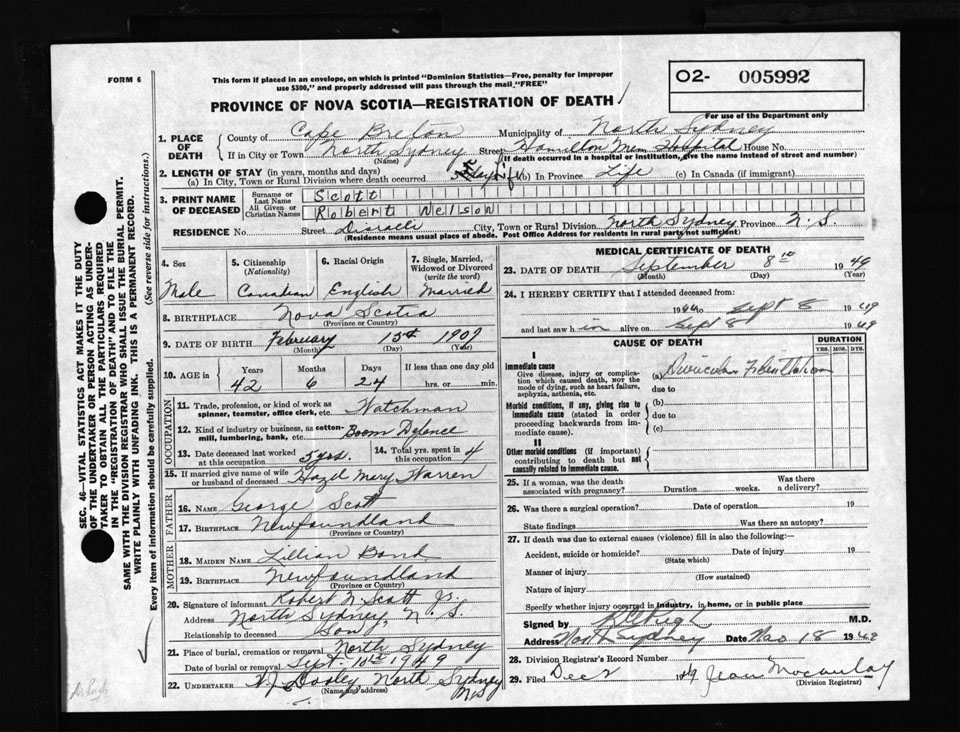 FORM 6
This form if placed in an envelope, on which is printed "Dominion Statistics—Free, penalty for improper
use $300," and properly addressed will pass through the mail "FREE"
O2- 005992
For use of the Department only
PROVINCE OF NOVA SCOTIA—REGISTRATION OF DEATH
1. PLACE OF DEATH
County of Cape Breton Municipality of North Sydney
If in City or Town North Sydney (Name) Street Hamilton Mem. Hospital House No.
(If death occurred in a hospital or institution, give the name instead of street and number)
2. LENGTH OF STAY (in years, months and days)
(a) In City, Town or Rural Division where death occurred (b) In Province Life (c) In Canada (if immigrant)
3. PRINT NAME OF DECEASED
Surname or Last Name Scott
All Given or Christian Names Robert Nelson
RESIDENCE No. Street Disraeli City, Town or Rural Division North Sydney Province N.S.
(Residence means usual place of abode. Post Office Address for residents in rural parts not sufficient)
4. Sex Male
5. Citizenship (Nationality) Canadian
6. Racial Origin English
7. Single, Married, Widowed or Divorced (write the word) Married
8. BIRTHPLACE Nova Scotia
(Province or Country)
9. DATE OF BIRTH February 15th 1907
(Month) (Day) (Year)
10. AGE in Years 42 Months 6 Days 24 If less than one day old hrs. or min.
OCCUPATION
11. Trade, profession, or kind of work as spinner, teamster, office clerk, etc. Watchman
12. Kind of industry or business, as cotton-mill, lumbering, bank, etc. Boom Defence
13. Date deceased last worked at this occupation 5 yrs. 14. Total yrs. spent in this occupation 4
15. If married give name of wife or husband of deceased Hazel Mary Warren
FATHER
16. Name George Scott
17. Birthplace Newfoundland
(Province or Country)
MOTHER
18. MAIDEN NAME Lillian Bond
19. BIRTHPLACE Newfoundland
(Province or Country)
20. Signature of informant Robert N. Scott Jr.
Address North Sydney, N. S.
Relationship to deceased Son
21. Place of burial, cremation or removal North Sydney
Date of burial or removal Sept. 10th 1949
22. UNDERTAKER Dooley North Sydney N.S
(Name and address)
MEDICAL CERTIFICATE OF DEATH
23. DATE OF DEATH September 8th 1949
(Month) (Day) (Year)
24. I HEREBY CERTIFY that I attended deceased from:
Sept 8 1949
and last saw h im alive on Sept 8 1949
CAUSE OF DEATH
DURATION
YRS. MOS. DYS.
I
Immediate cause
Give disease, injury or complication which caused death, NOT the mode of dying, such as heart failure, asphyxia, asthenia, etc.
(a) Auricular Fibrillation
due to
Morbid conditions, if any, giving rise to immediate cause (stated in order proceeding backwards from immediate cause).
(b)
due to
(c)
II
Other morbid conditions (if important) contributing to death but not causally related to immediate cause.
25. If a woman, was the death associated with pregnancy? Duration weeks. Was there a delivery?
26. Was there a surgical operation? Date of operation 19
State findings Was there an autopsy?
27. If death was due to external causes (violence) fill in also the following:—
Accident, suicide or homicide? Date of injury 19
(State which)
Manner of injury
(How sustained)
Nature of injury
Specify whether injury occurred in industry, in home, or in public place
Signed by M.D.
Address North Sydney Date Nov 18 1949
28. Division Registrar's Record Number
29. Filed Dec 2 1949 Jean Macaulay
(Division Registrar)
SEC. 46—VITAL STATISTICS ACT MAKES IT THE DUTY
OF THE UNDERTAKER OR PERSON ACTING AS UNDER-
TAKER TO OBTAIN ALL THE PARTICULARS REQUIRED
IN THE "REGISTRATION OF DEATH" AND TO FILE THE
SAME WITH THE DIVISION REGISTRAR WHO SHALL ISSUE THE BURIAL PERMIT.
WRITE PLAINLY WITH UNFADING INK. THIS IS A PERMANENT RECORD.
Every item of information should be carefully supplied. (See reverse side for instructions.)